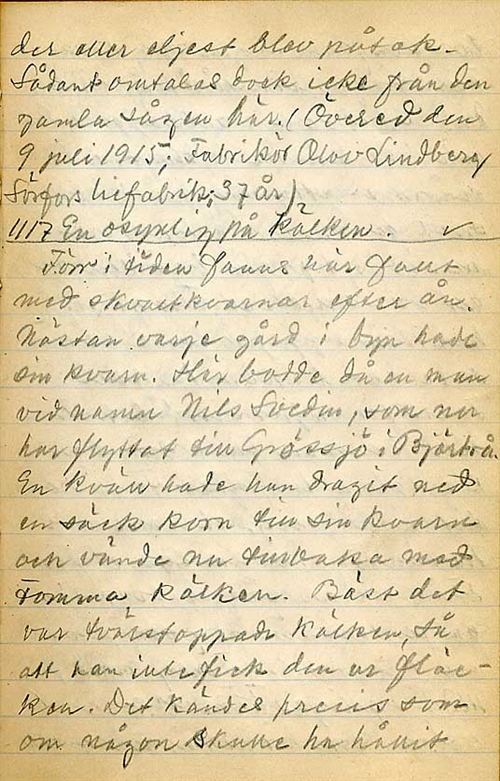 der eller eljest blev påtak-
Sådant omtalas dock icke från den
gamla sågen här. (Övered den
9 juli 1915, Fabrikör Olov Lindberg,
Sörfors liefabrik, 37 år)
1117 En osynlig på kälken. ✓
Förr i tiden fanns här fullt
med skvaltkvarnar efter ån.
Nästan varje gård i byn hade
sin kvarn. Här bodde då en man
vid namn Nils Svedin, som nu
har flyttat till Grössjö i Björtrå.
En kväll hade han dragit ned
en säck korn till sin kvarn
och vände nu tillbaka med
tomma kälken. Bäst det
var tvärstoppade kälken, så
att han inte fick den ur fläc-
ken. Det kändes precis som
om någon skulle ha hållit